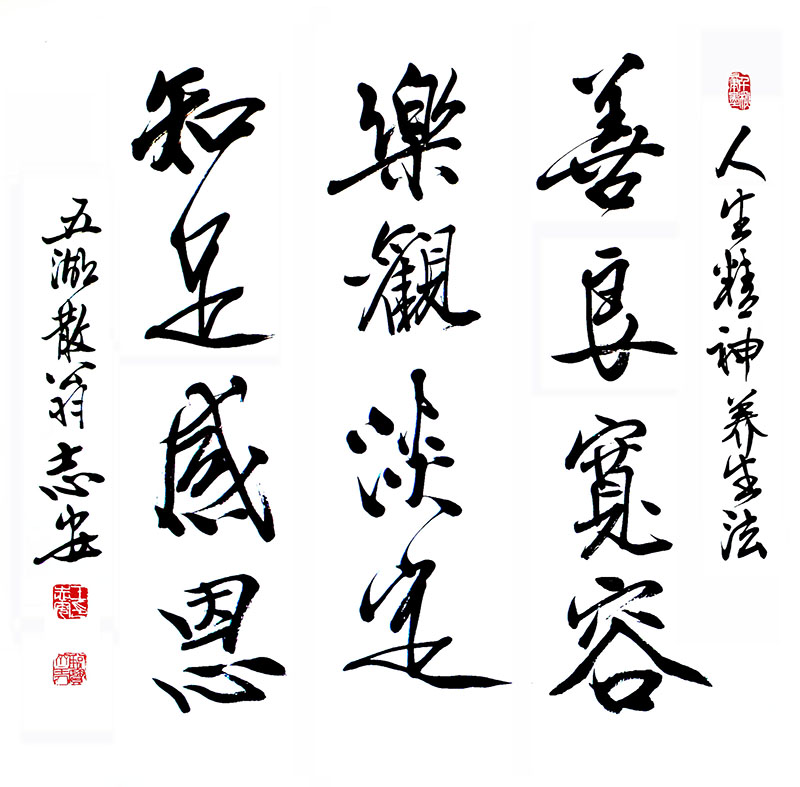 人生精神养生法
善良寬容
樂觀淡定
知足感恩
五湖散翁志安